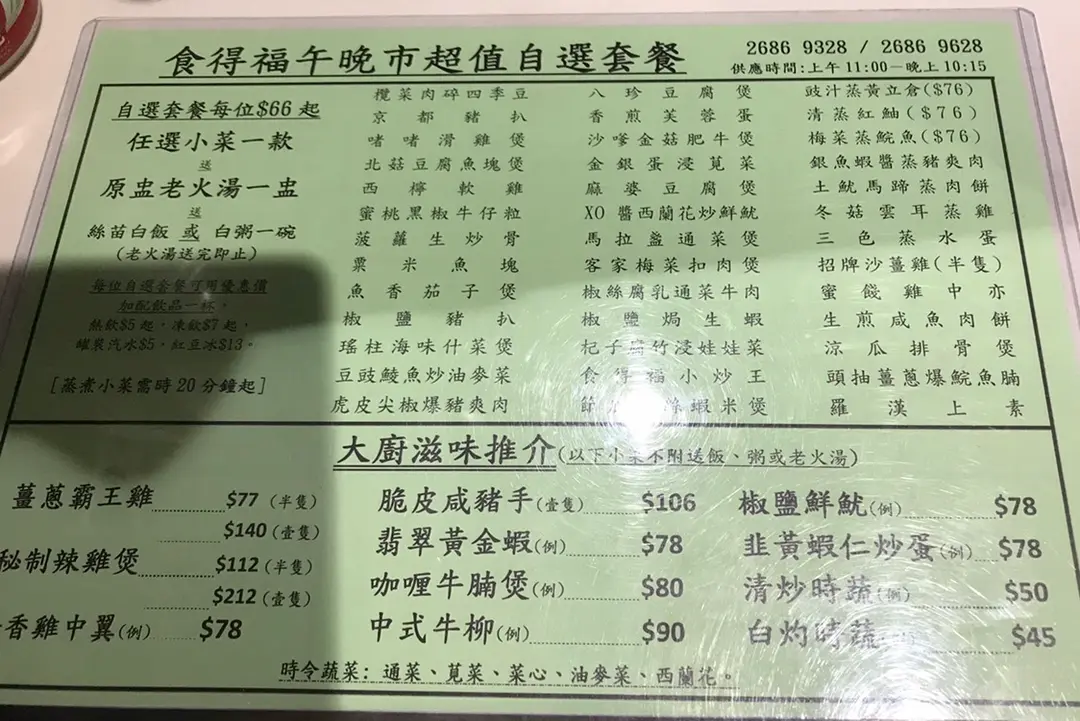 食得福午晚市超值自選套餐
2686 9328 / 2686 9628
供應時間:上午11:00－晚上10:15
自選套餐每位$66起
任選小菜一款
送
原盅老火湯一盅
送
絲苗白飯 或 白粥一碗
(老火湯送完即止)
每位自選套餐可用優惠價
加配飲品一杯。
熱飲$5起，凍飲$7起，
罐裝汽水$5，紅豆冰$13。
[蒸煮小菜需時20分鐘起]
欖菜肉碎四季豆
京都豬扒
啫啫滑雞煲
北菇豆腐魚塊煲
西檸軟雞
蜜桃黑椒牛仔粒
菠蘿生炒骨
粟米魚塊
魚香茄子煲
椒鹽豬扒
瑤柱海味什菜煲
豆豉鯪魚炒油麥菜
虎皮尖椒爆豬爽肉
八珍豆腐煲
香煎芙蓉蛋
沙嗲金菇肥牛煲
金銀蛋浸莧菜
麻婆豆腐煲
XO醬西蘭花炒鮮魷
馬拉盞通菜煲
客家梅菜扣肉煲
椒絲腐乳通菜牛肉
椒鹽焗生蝦
杞子腐竹浸娃娃菜
食得福小炒王
節 絲蝦米煲
豉汁蒸黃立倉($76)
清蒸紅鮋($76)
梅菜蒸鯇魚($76)
銀魚蝦醬蒸豬爽肉
土魷馬蹄蒸肉餅
冬菇雲耳蒸雞
三色蒸水蛋
招牌沙薑雞(半隻)
蜜餞雞中亦
生煎咸魚肉餅
涼瓜排骨煲
頭抽薑蔥爆鯇魚腩
羅漢上素
大廚滋味推介(以下小菜不附送飯、粥或老火湯)
薑蔥霸王雞 $77 (半隻)
$140 (壹隻)
秘制辣雞煲 $112 (半隻)
$212 (壹隻)
香雞中翼(例) $78
脆皮咸豬手(壹隻) $106
翡翠黃金蝦(例) $78
咖喱牛腩煲(例) $80
中式牛柳(例) $90
椒鹽鮮魷(例) $78
韭黃蝦仁炒蛋(例) $78
清炒時蔬(例) $50
白灼時蔬 $45
時令蔬菜：通菜、莧菜、菜心、油麥菜、西蘭花。